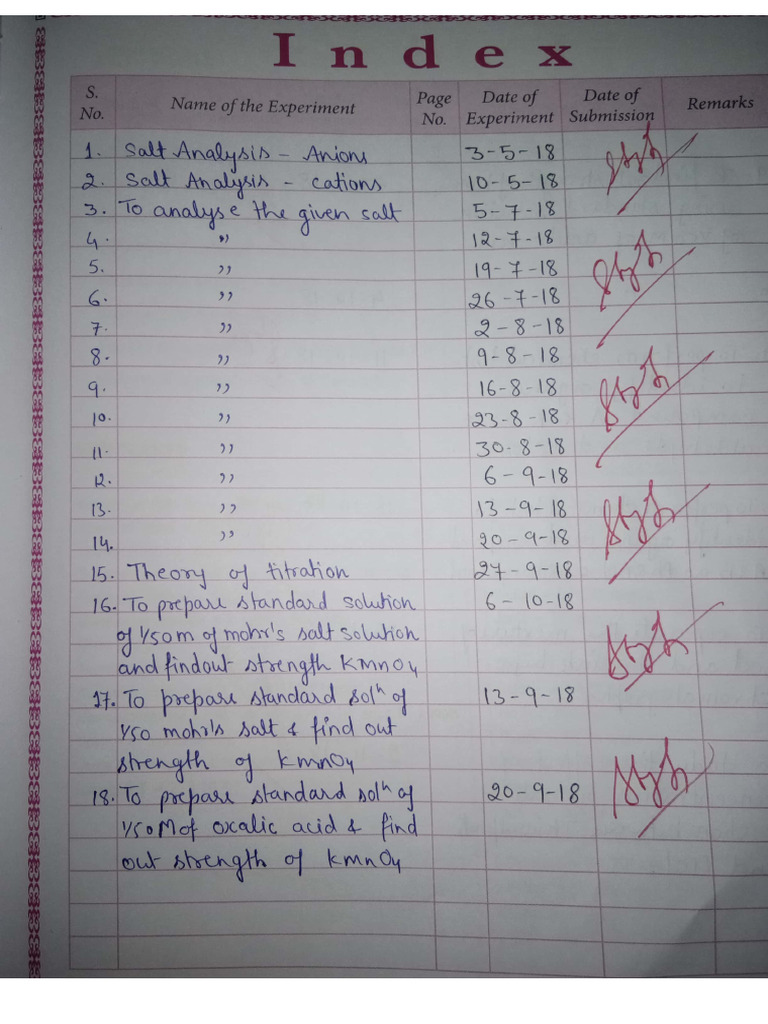 Index
S. No. Name of the Experiment Page No. Date of Experiment Date of Submission Remarks
1. Salt Analysis - Anions 3-5-18
2. Salt Analysis - cations 10-5-18
3. To analyse the given salt 5-7-18
4. ,, 12-7-18
5. ,, 19-7-18
6. ,, 26-7-18
7. ,, 2-8-18
8. ,, 9-8-18
9. ,, 16-8-18
10. ,, 23-8-18
11. ,, 30-8-18
12. ,, 6-9-18
13. ,, 13-9-18
14. ,, 20-9-18
15. Theory of titration 27-9-18
16. To prepare standard solution 6-10-18
of 1/50 m of mohr's salt solution
and findout strength KMnO4
17. To prepare standard solⁿ of 13-9-18
1/50 mohr's salt & find out
strength of kmnO4
18. To prepare standard solⁿ of 20-9-18
1/50 M of oxalic acid & find
out strength of kmnO4